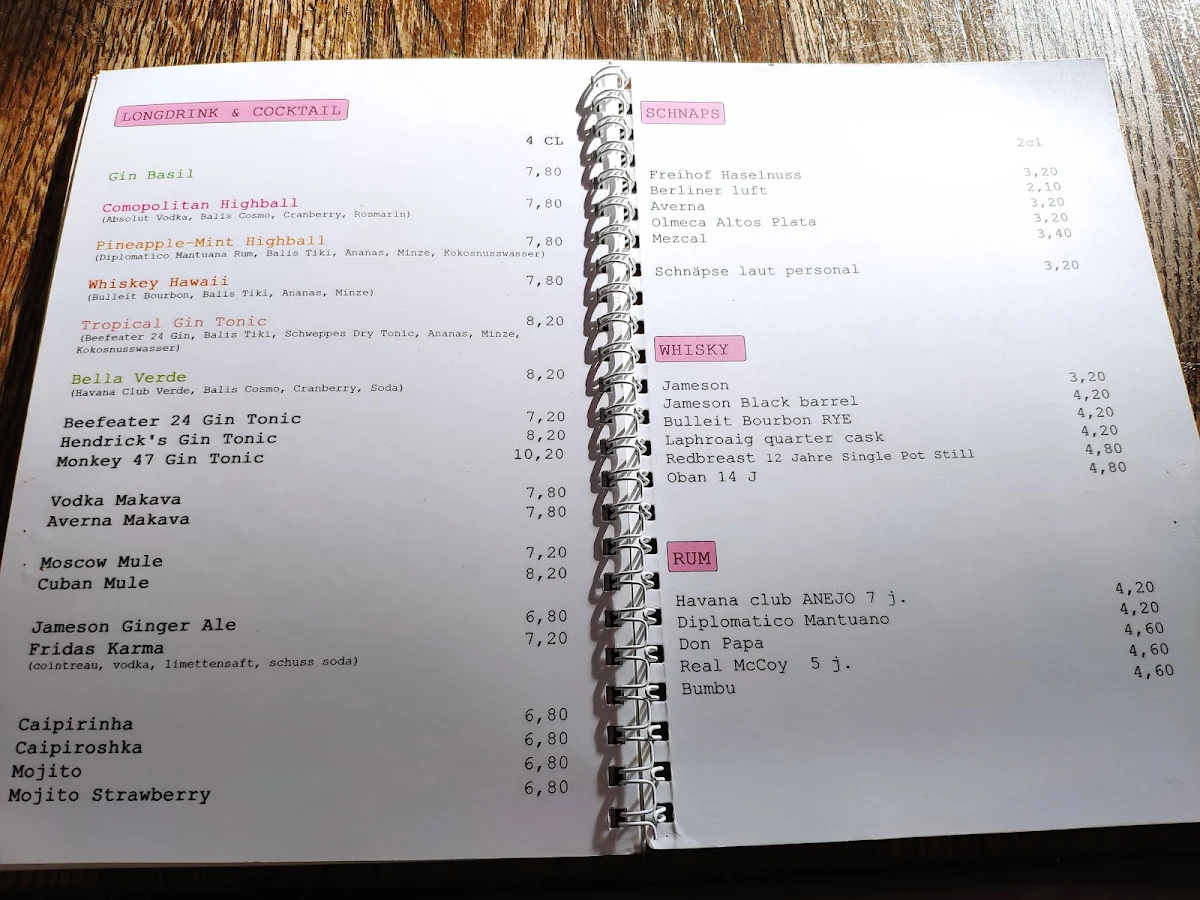 LONGDRINK & COCKTAIL
4 CL
Gin Basil 7,80
Comopolitan Highball 7,80
(Absolut Vodka, Balis Cosmo, Cranberry, Rosmarin)
Pineapple-Mint Highball 7,80
(Diplomatico Mantuana Rum, Balis Tiki, Ananas, Minze, Kokosnusswasser)
Whiskey Hawaii 7,80
(Bulleit Bourbon, Balis Tiki, Ananas, Minze)
Tropical Gin Tonic 8,20
(Beefeater 24 Gin, Balis Tiki, Schweppes Dry Tonic, Ananas, Minze,
Kokosnusswasser)
Bella Verde 8,20
(Havana Club Verde, Balis Cosmo, Cranberry, Soda)
Beefeater 24 Gin Tonic 7,20
Hendrick's Gin Tonic 8,20
Monkey 47 Gin Tonic 10,20
Vodka Makava 7,80
Averna Makava 7,80
Moscow Mule 7,20
Cuban Mule 8,20
Jameson Ginger Ale 6,80
Fridas Karma 7,20
(cointreau, vodka, limettensaft, schuss soda)
Caipirinha 6,80
Caipiroshka 6,80
Mojito 6,80
Mojito Strawberry 6,80
SCHNAPS
2cl
Freihof Haselnuss 3,20
Berliner luft 2,10
Averna 3,20
Olmeca Altos Plata 3,20
Mezcal 3,40
Schnäpse laut personal 3,20
WHISKY
Jameson 3,20
Jameson Black barrel 4,20
Bulleit Bourbon RYE 4,20
Laphroaig quarter cask 4,20
Redbreast 12 Jahre Single Pot Still 4,80
Oban 14 J 4,80
RUM
Havana club ANEJO 7 j. 4,20
Diplomatico Mantuano 4,20
Don Papa 4,60
Real McCoy 5 j. 4,60
Bumbu 4,60